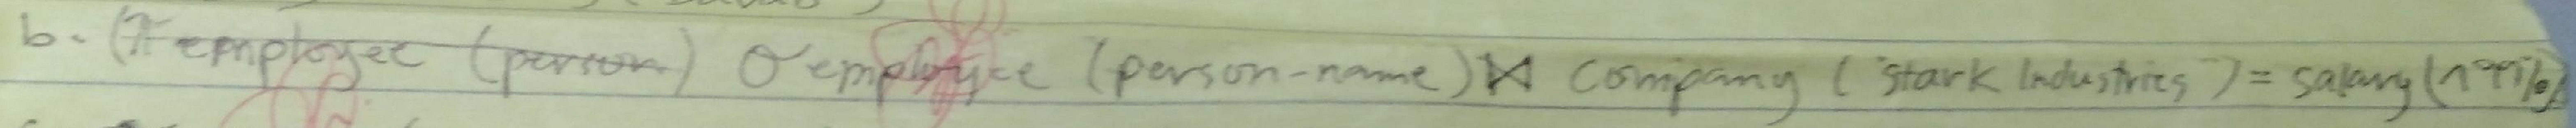 b. (π employee (person) σ employee (person-name) ⋈ company ("Stark Industries") = salary (n